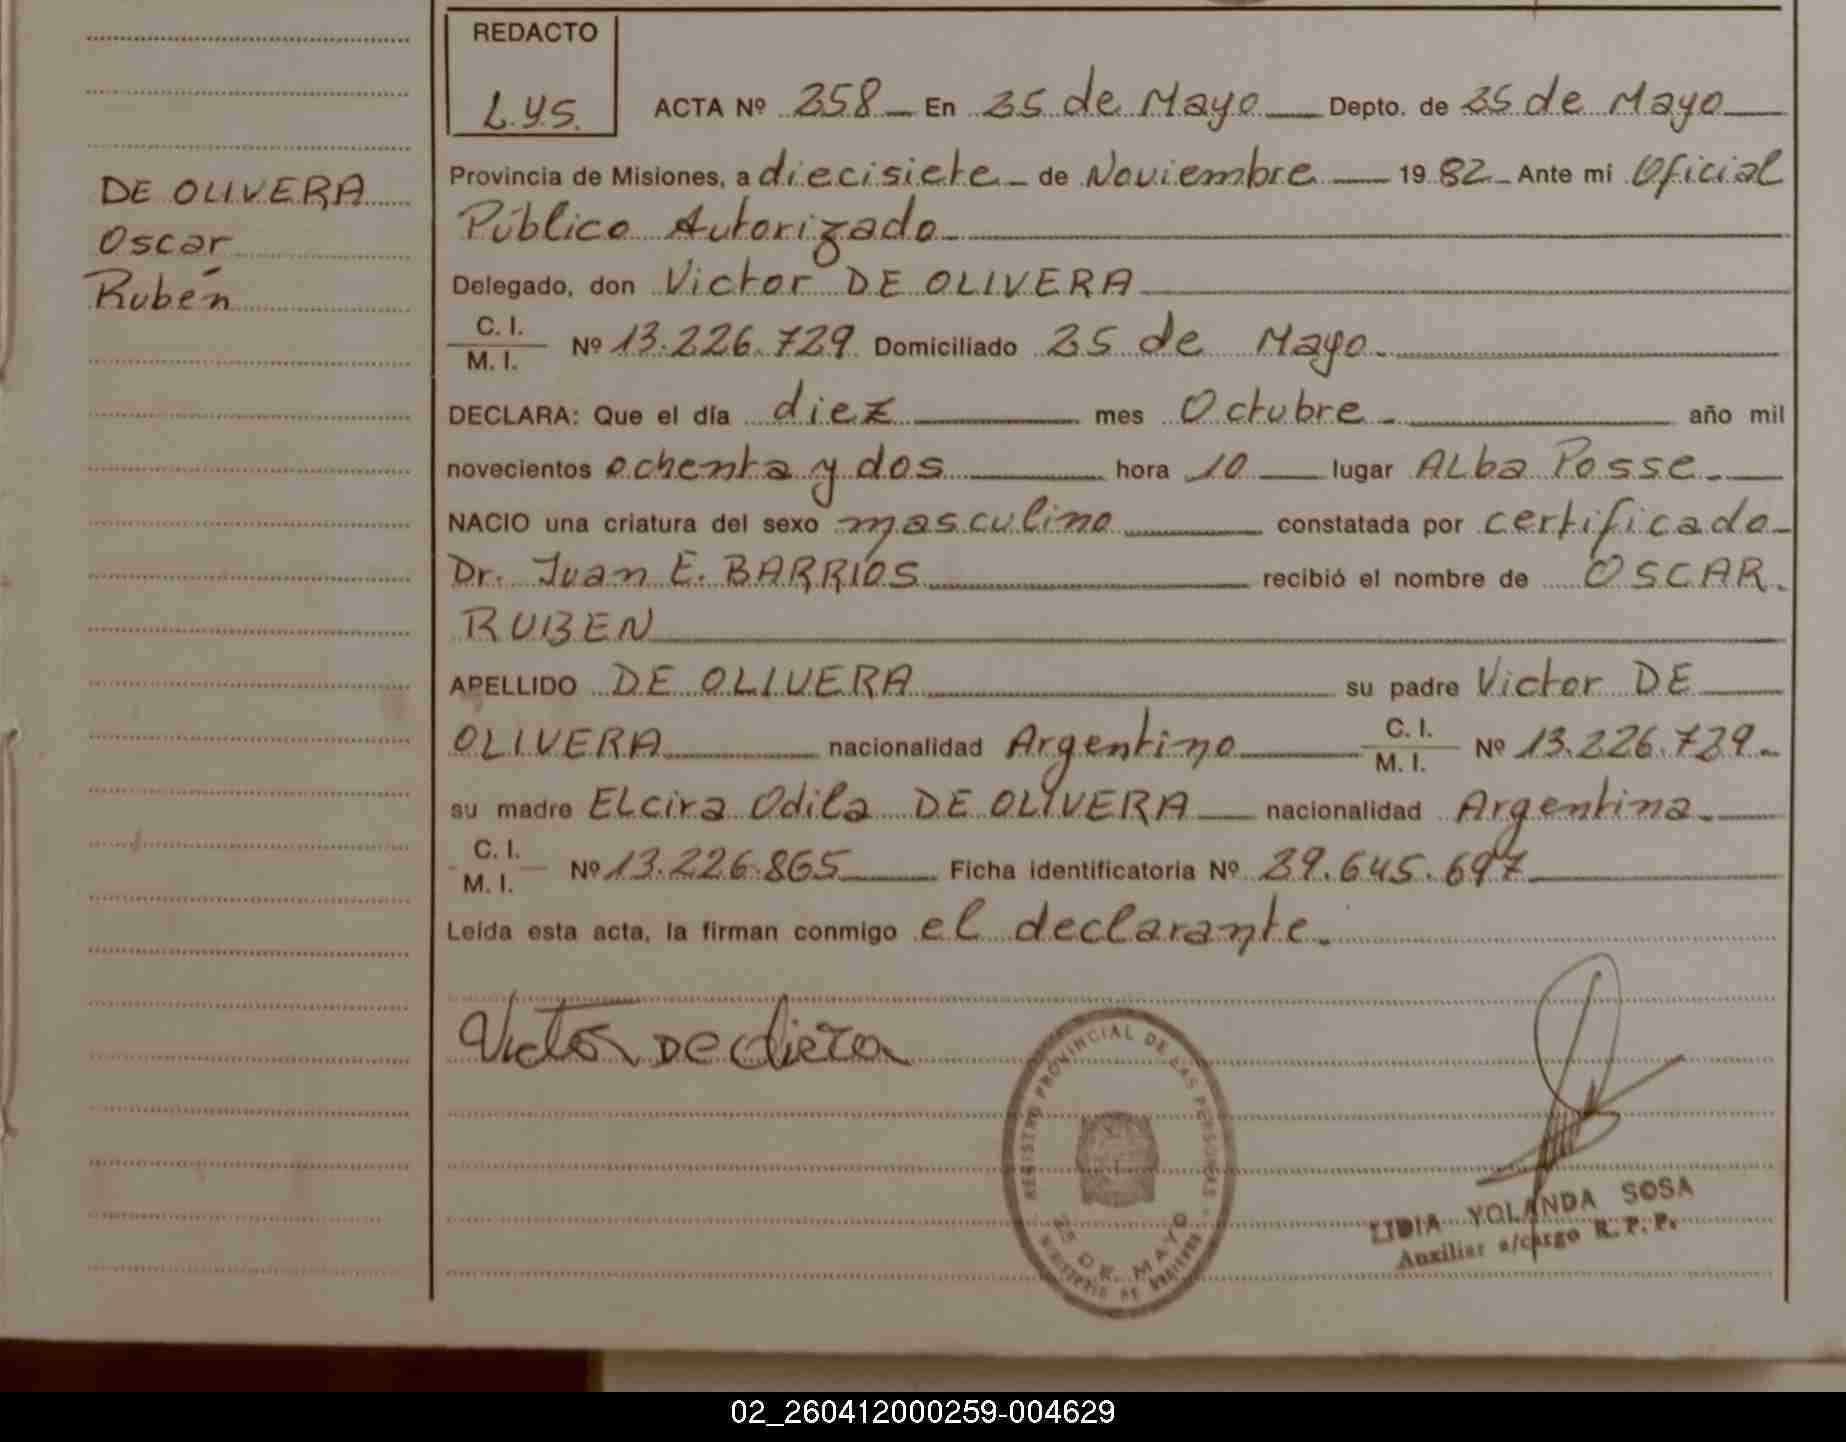 REDACTO
L.Y.S.
ACTA Nº 258 En 25 de Mayo Depto. de 25 de Mayo
Provincia de Misiones, a diecisiete de Noviembre 1982 Ante mí Oficial
Público Autorizado
DE OLIVERA
Oscar
Rubén
Delegado, don Victor DE OLIVERA
C. I.
M. I. Nº 13.226.729 Domiciliado 25 de Mayo
DECLARA: Que el día diez mes Octubre año mil
novecientos ochenta y dos hora 10 lugar Alba Posse
NACIO una criatura del sexo masculino constatada por certificado
Dr. Juan E. BARRIOS recibió el nombre de OSCAR
RUBEN
APELLIDO DE OLIVERA su padre Victor DE
OLIVERA nacionalidad Argentino C. I. M. I. Nº 13.226.729
su madre Elcira Odila DE OLIVERA nacionalidad Argentina
C. I.
M. I. Nº 13.226.865 Ficha identificatoria Nº 29.645.697
Leída esta acta, la firman conmigo el declarante.
Victor DE
REGISTRO PROVINCIAL DE LAS PERSONAS
25 DE MAYO
LIDIA YOLANDA SOSA
Auxiliar a/cargo R. P. P.
02_260412000259-004629